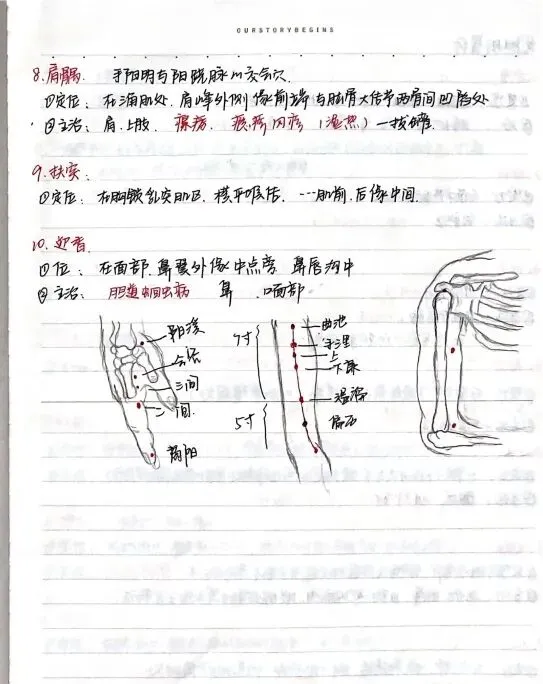 OURSTORYBEGINS
8.肩髃. 手阳明与阳跷脉的交会穴
①定位: 在三角肌处. 肩峰外侧缘前端与肱骨大结节两骨间凹陷处
②主治: 肩.上肢. 瘰疬. 瘾疹
9.扶突:
①定位: 在胸锁乳突肌区. 横平喉结. 肌前.后缘中间.
10.迎香
①位: 在面部.鼻翼外缘中点旁 鼻唇沟中
②主治: 胆道蛔虫病 鼻 .口面部
阳溪
合谷
三间
二间.
商阳
7寸
5寸
曲池
手三里
上
下廉
温溜
偏历